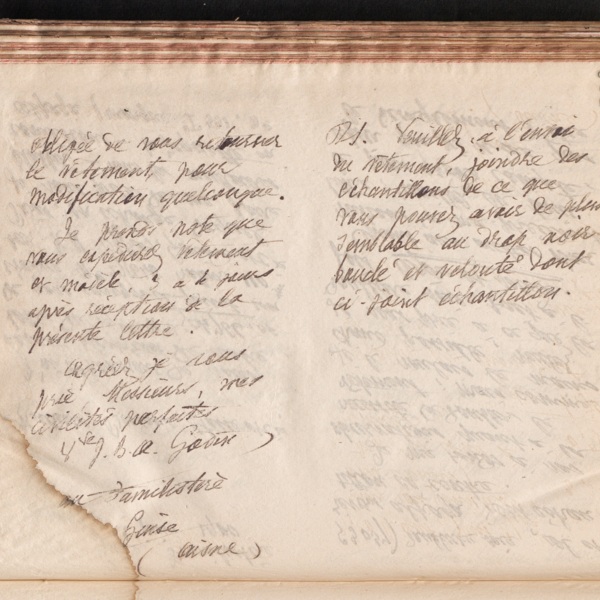 obligée de vous retourner
le vêtement, pour
modification quelconque.
Je prends note que
vous expédiez vêtement
et modèle, 3 à 4 jours
après réception de la
présente lettre.
agréez je vous
prie Messieurs, mes
civilités parfaites
Vve J. B. A. Godin
au Familistère
Guise
(aisne)
P.S. Veuillez, à l'envoi
du vêtement, joindre des
échantillons de ce que
vous pouvez avoir de plus
semblable au drap noir
et velouté dont
ci-joint échantillon.